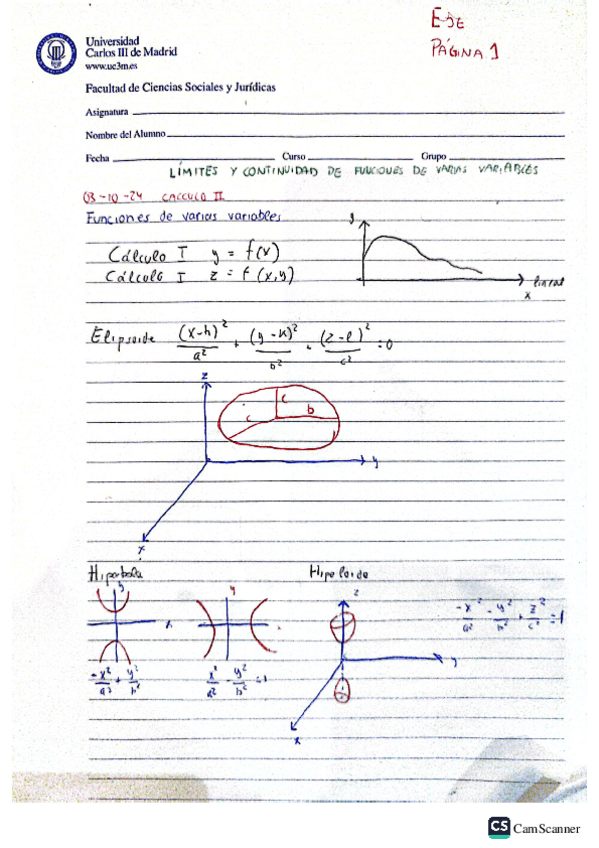 EJE
PÁGINA 1
Universidad
Carlos III de Madrid
www.uc3m.es
Facultad de Ciencias Sociales y Jurídicas
Asignatura
Nombre del Alumno
Fecha Curso Grupo
LÍMITES Y CONTINUIDAD DE FUNCIONES DE VARIAS VARIABLES
03-10-24 CALCULO II
Funciones de varias variables
Cálculo I y = f(x)
Cálculo I z = f(x,y)
y
x
Elipsoide (x-h)²/a² + (y-k)²/b² + (z-l)²/c² = 0
z
c
b
c
y
x
Hiperbola
y
x
-x²/a² + y²/b²
y
x²/a² - y²/b² = 1
z
y
x
-x²/a² - y²/b² + z²/c² = 1
CS CamScanner